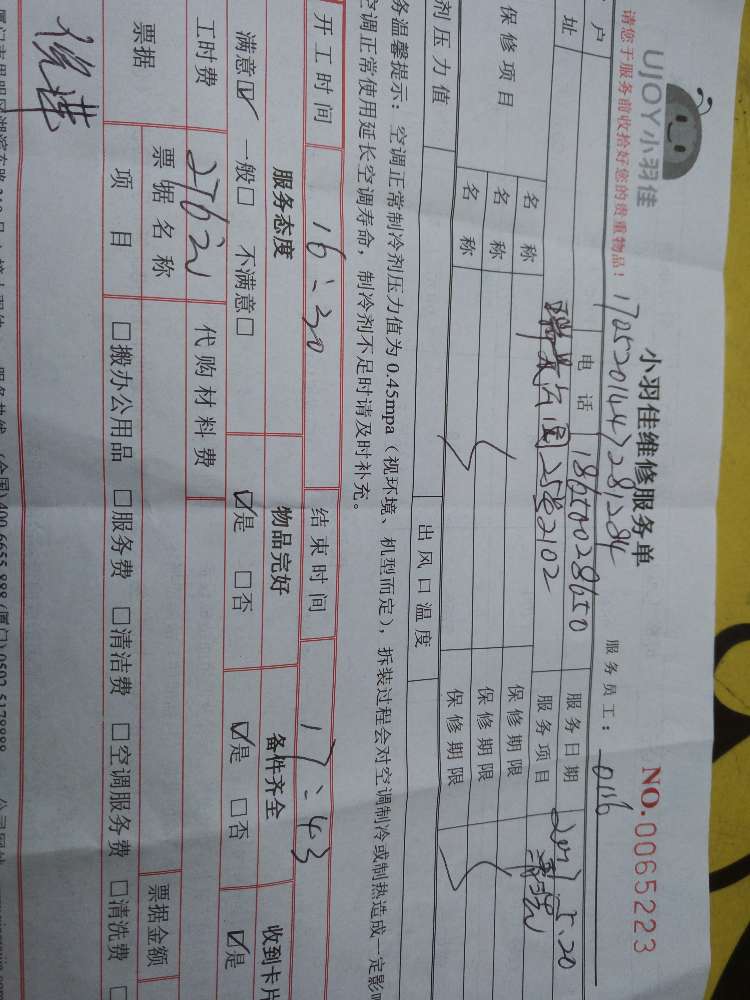 UJOY小羽佳
小羽佳维修服务单
NO.0065223
请您于服务前收拾好您的贵重物品!
17052014472812284
服务员工: 0116
户
电话 18650028650
服务日期
5.20
址
25#2102
服务项目
保修项目
名称
保修期限
名称
保修期限
名称
保修期限
剂压力值
出风口温度
务温馨提示：空调正常制冷剂压力值为0.45mpa（视环境、机型而定），拆装过程会对空调制冷或制热造成一定影响
空调正常使用延长空调寿命，制冷剂不足时请及时补充。
开工时间 16:30
结束时间 17:43
服务态度
物品完好
备件齐全
收到卡片
满意☑ 一般□ 不满意□
☑是 □否
☑是 □否
☑是
工时费
代购材料费
票据
票据名称
票据金额
项目
□搬办公用品 □服务费 □清洁费 □空调服务费 □清洗费 □